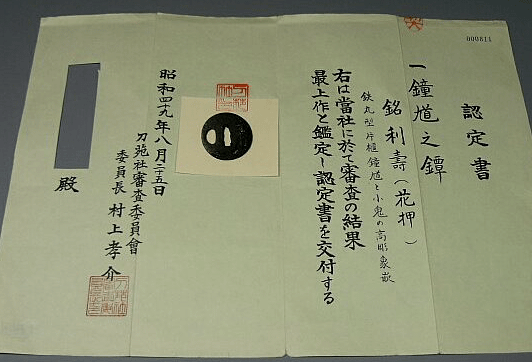 000811
認定書
一鐘馗之鐔
銘利壽（花押）
鉄丸型片櫃鐘馗と小鬼の高彫象嵌
右は當社に於て審査の結果
最上作と鑑定し認定書を交付する
昭和四十九年八月二十五日
刀苑社審査委員會
委員長 村上孝介
殿